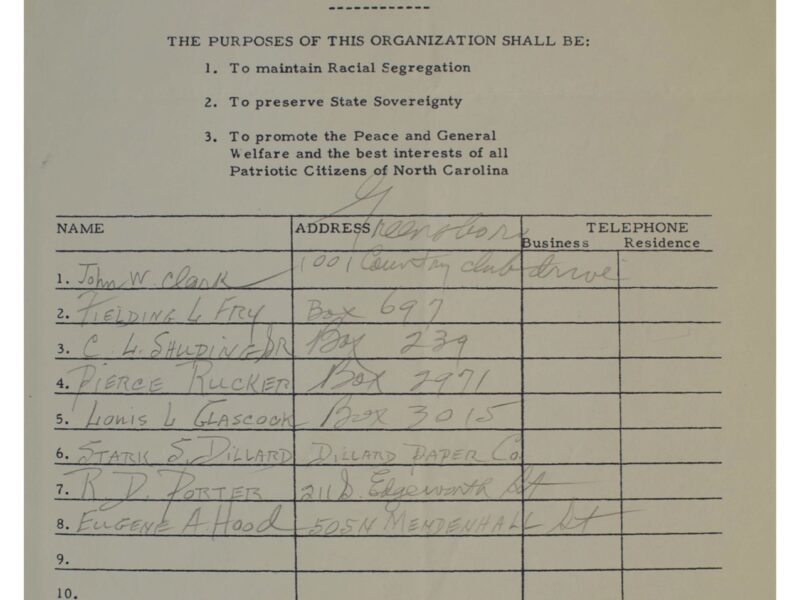 THE PURPOSES OF THIS ORGANIZATION SHALL BE:
1. To maintain Racial Segregation
2. To preserve State Sovereignty
3. To promote the Peace and General
Welfare and the best interests of all
Patriotic Citizens of North Carolina
Greensboro
NAME ADDRESS TELEPHONE
Business Residence
1. John W. Clark 1001 Country club drive
2. FIELDING L FRY Box 697
3. C. L. SHUDING, SR Box 239
4. PIERCE RUCKER Box 2971
5. Louis L GLASCOCK Box 3015
6. STARK S. DILLARD DILLARD PAPER Co
7. R. D. PORTER 211 S. Edgeworth St
8. EUGENE A. HOOD 505 N MENDENHALL St
9.
10.